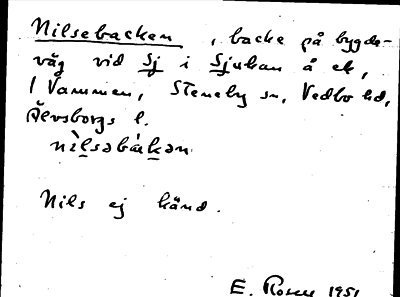 Nilsebacken, backe på bygde-
väg vid Sj i Sjukan å ek,
I Vammen, Steneby sn, Vedbo hd,
Älvsborgs l.
nìlsəbàkən
Nils ej känd.
E. 1951